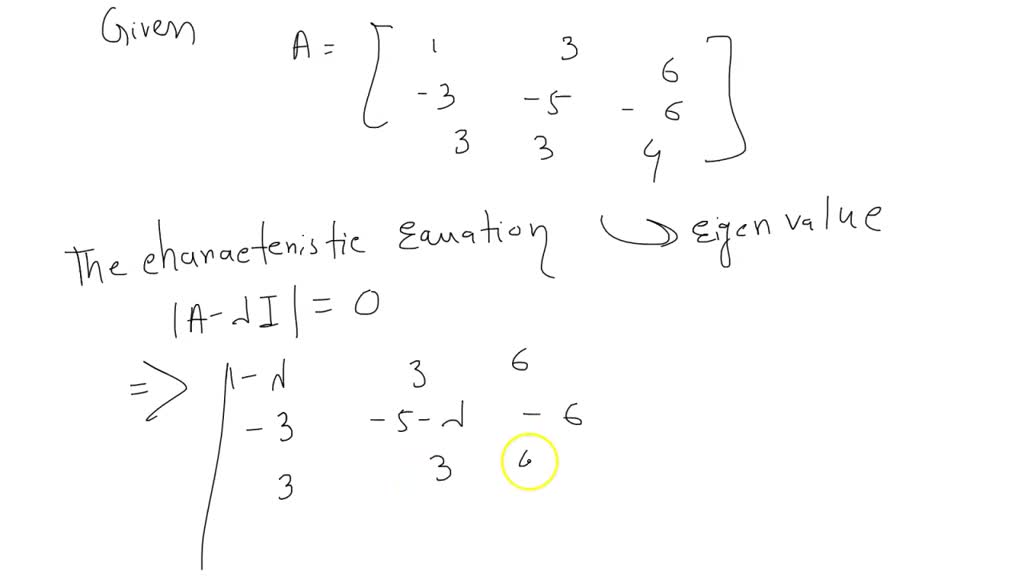 Given
A = [ 1 3 6
-3 -5 -6
3 3 4 ]
The characteristic Equation ↪ Eigen value
|A-λI| = 0
=> |1-λ 3 6
-3 -5-λ -6
3 3